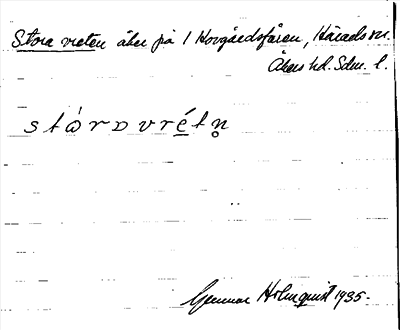 Stora vreten åker på / Hovgårdsfåren, Härads sn.
Åkers hd. Sdm. l.
stὼrɒvré̲tn̥
Gunnar Holmquist 1935.